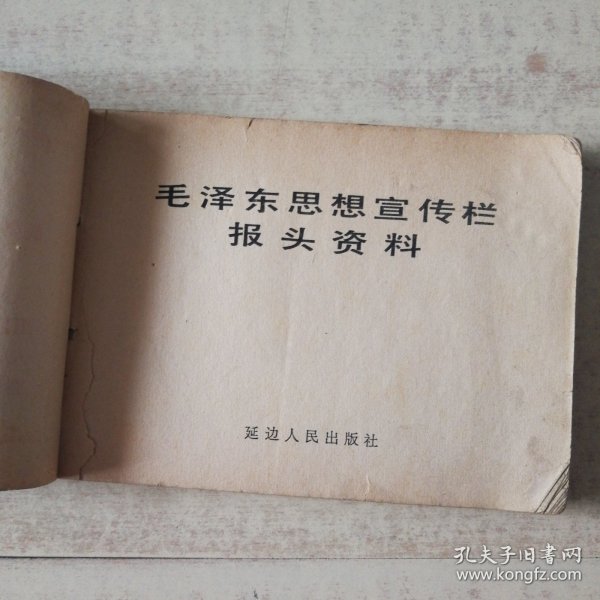 毛泽东思想宣传栏
报头资料
延边人民出版社
孔夫子旧书网
www.kongfz.com